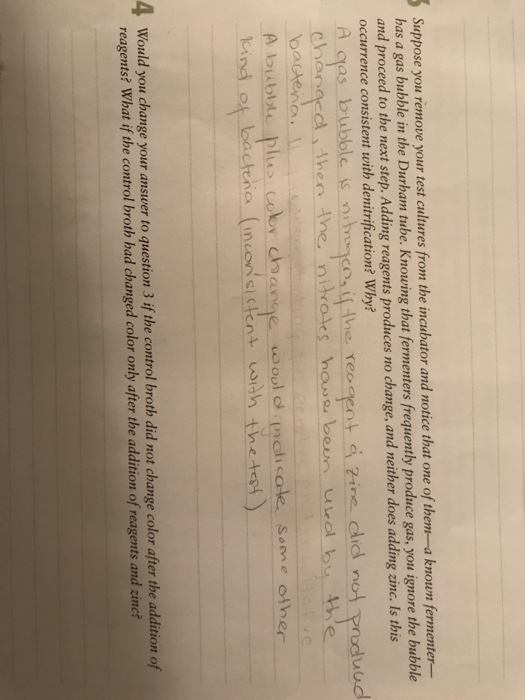 3 Suppose you remove your test cultures from the incubator and notice that one of them—a known fermenter—
has a gas bubble in the Durham tube. Knowing that fermenters frequently produce gas, you ignore the bubble
and proceed to the next step. Adding reagents produces no change, and neither does adding zinc. Is this
occurrence consistent with denitrification? Why?
A gas bubble is nitrogen, if the reagent & zinc did not produced
changed, then the nitrates have been used by the
bacteria.
A bubble plus color change would indicate some other
kind of bacteria (inconsistent with the test)
4 Would you change your answer to question 3 if the control broth did not change color after the addition of
reagents? What if the control broth had changed color only after the addition of reagents and zinc?